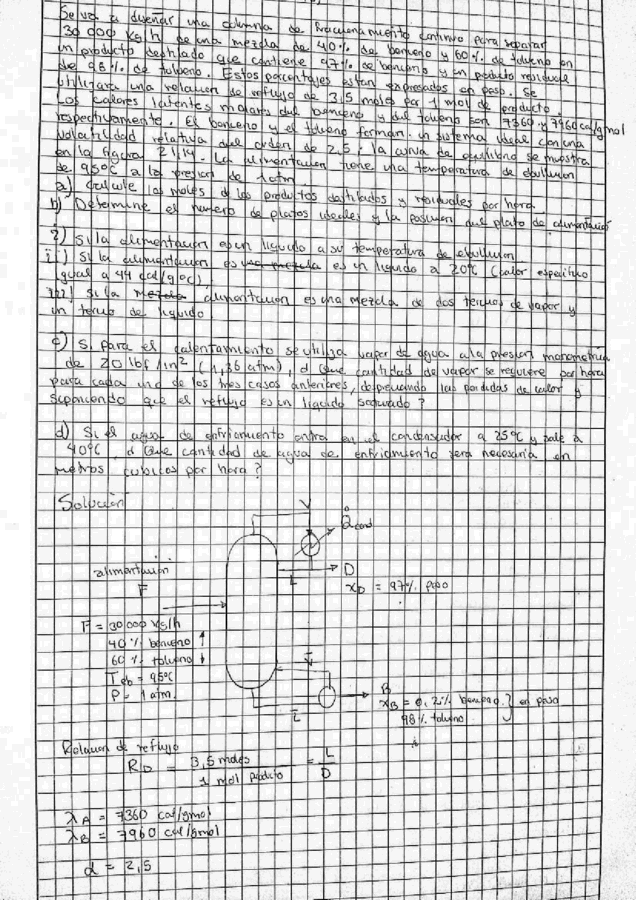 Se va a diseñar una columna de fraccionamiento continuo para separar
30 000 Kg/h de una mezcla de 40% de benceno y 60% de tolueno en
un producto destilado que contiene 97% de benceno y un producto residual
de 98% de tolueno. Estos porcentajes estan expresados en peso. Se
utilizara una relacion de reflujo de 3,5 moles por 1 mol de producto.
Los calores latentes molares del benceno y del tolueno son 7360 y 7960 cal/gmol
respectivamente. El benceno y el tolueno forman un sistema ideal con una
volatilidad relativa del orden de 2,5; la curva de equilibrio se muestra
en la figura 21,14. La alimentacion tiene una temperatura de ebullicion
de 95°C a la presion de 1 atm
a) Calcule los moles de los productos destilados y residuales por hora
b) Determine el numero de platos ideales y la posicion del plato de alimentación
i) Si la alimentacion es un liquido a su temperatura de ebullicion
ii) Si la alimentacion es un liquido a 20°C (calor especifico
igual a 44 cal/g°C)
iii) Si la alimentacion es una mezcla de dos tercios de vapor y
un tercio de liquido
c) Si para el calentamiento se utiliza vapor de agua a la presion manometrica
de 20 lbf/in² (1,36 atm), d Que cantidad de vapor se requiere por hora
para cada uno de los tres casos anteriores, despreciando las perdidas de calor y
suponiendo que el reflujo es un liquido saturado?
d) Si el agua de enfriamiento entra en el condensador a 25°C y sale a
40°C, d Que cantidad de agua de enfriamiento sera necesaria en
metros cubicos por hora?
Solución
V
Q cond
D
L
xD = 97% peso
alimentación
F
F = 30 000 Kg/h
40% benceno ↑
60% tolueno ↓
Teb = 95°C
P = 1 atm.
V̄
L̄
B
xB = 0,2% benceno } en peso
98% tolueno
Relacion de reflujo
RD = 3,5 moles / 1 mol producto = L / D
λA = 7360 cal/gmol
λB = 7960 cal/gmol
α = 2,5